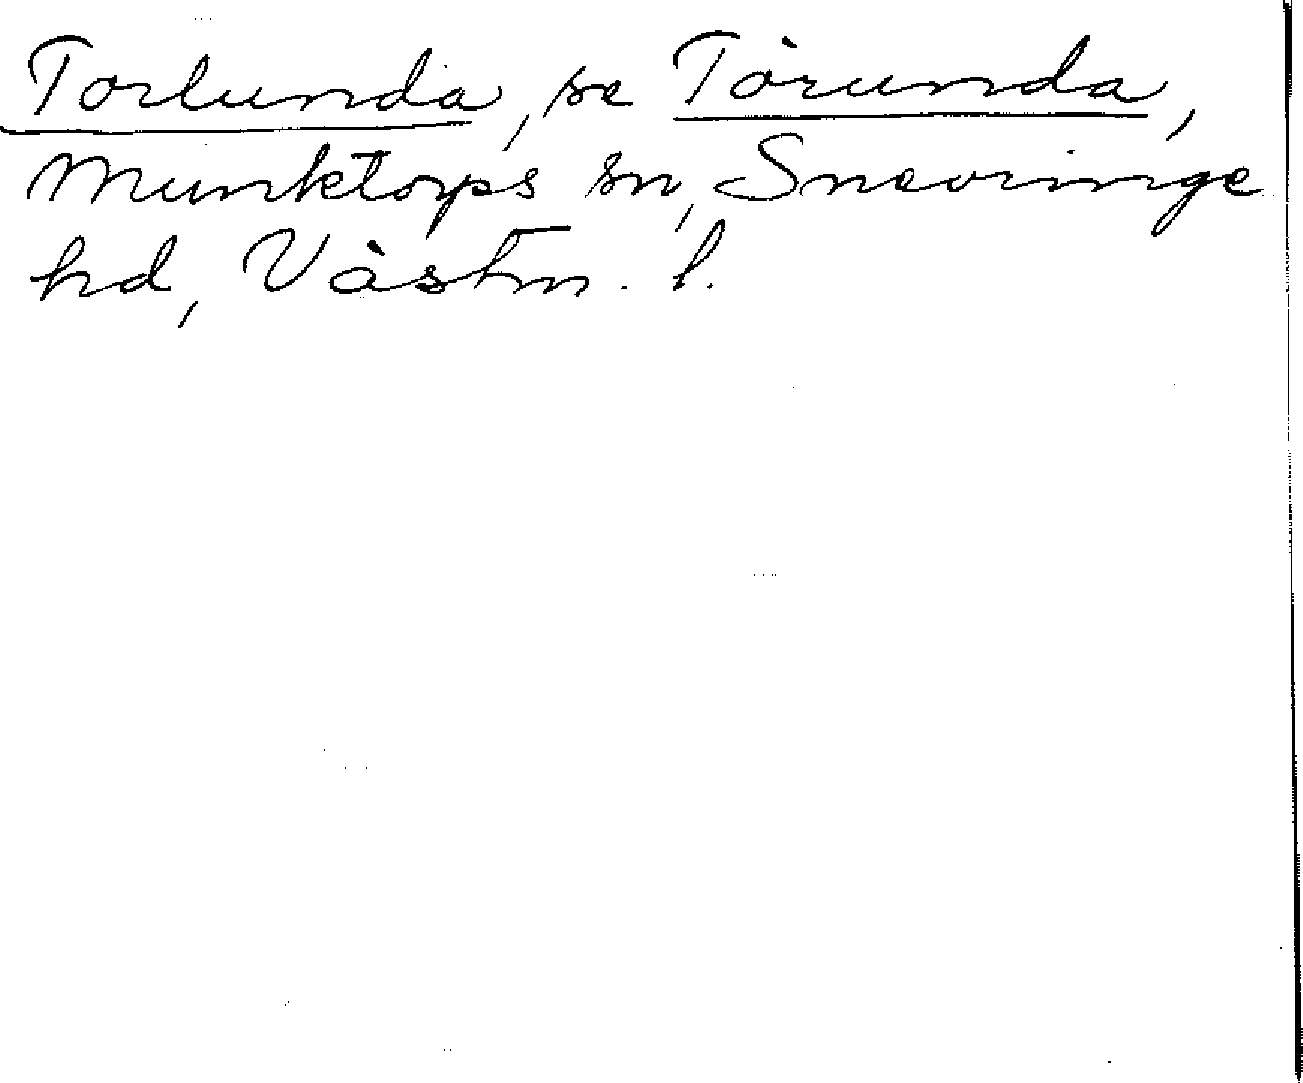 Torlunda, se Törunda,
Munktorps sn, Snevringe
hd, Västm. l.